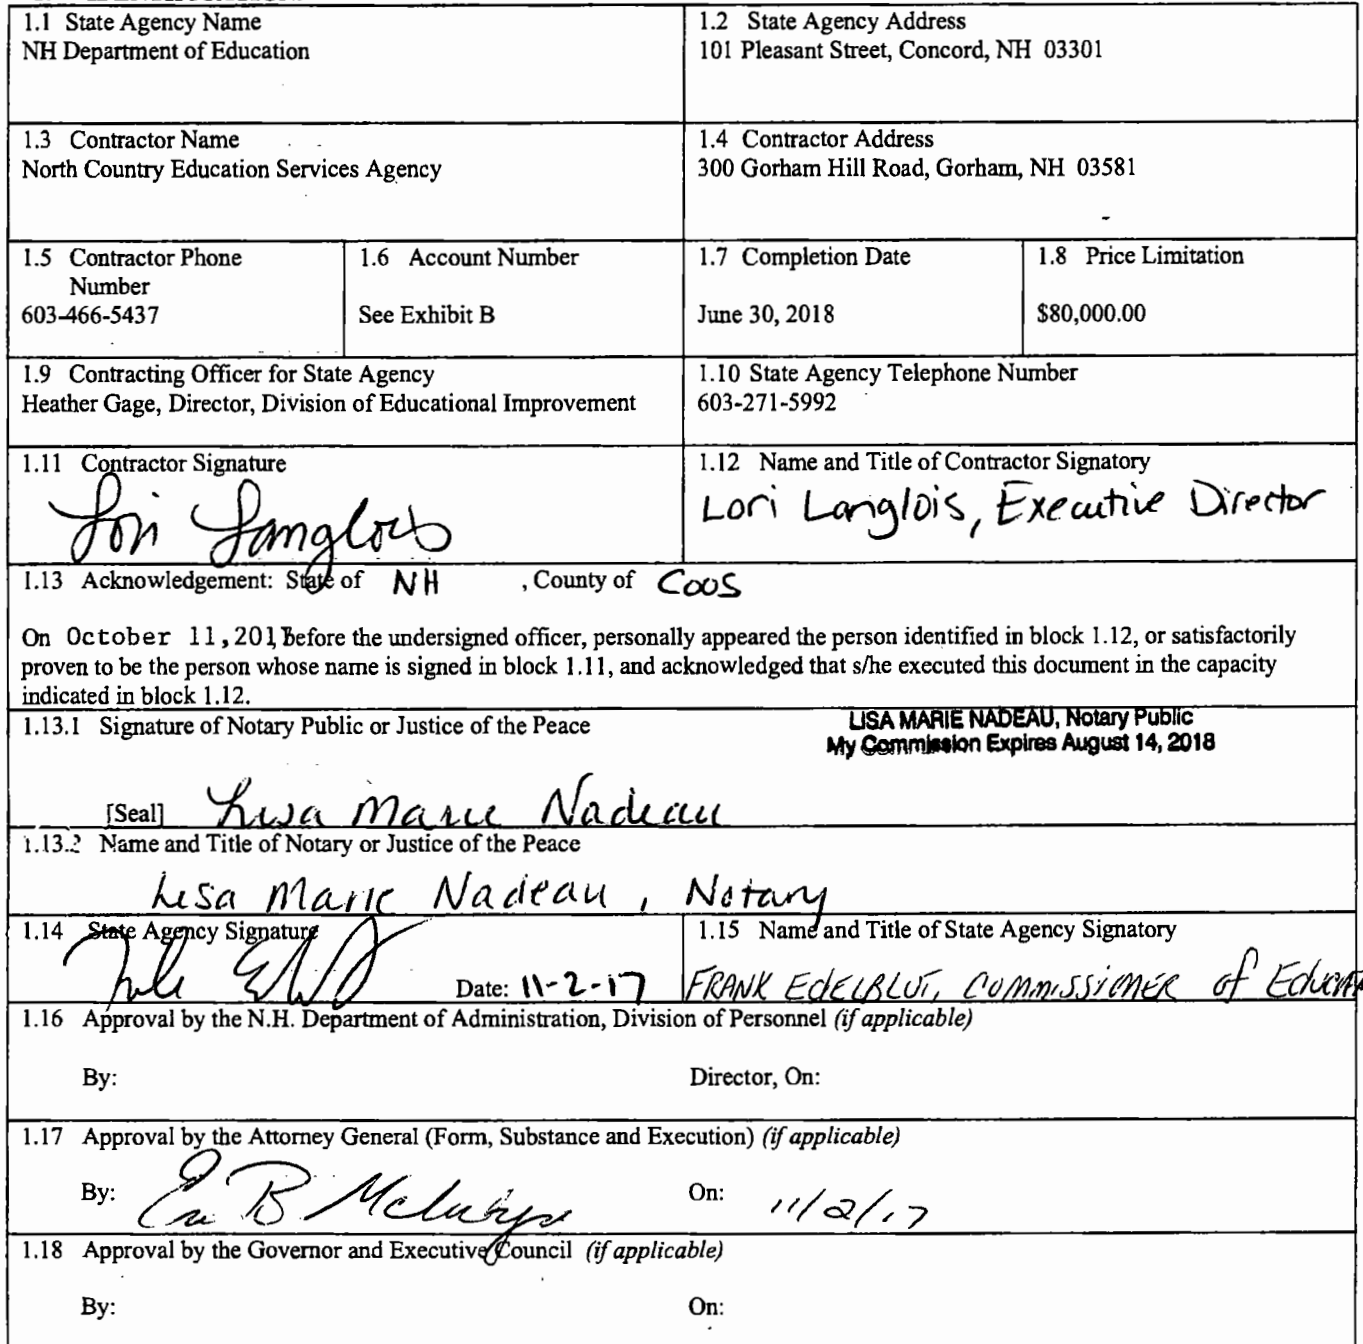 1.1 State Agency Name
NH Department of Education
1.2 State Agency Address
101 Pleasant Street, Concord, NH 03301
1.3 Contractor Name
North Country Education Services Agency
1.4 Contractor Address
300 Gorham Hill Road, Gorham, NH 03581
1.5 Contractor Phone
Number
603-466-5437
1.6 Account Number
See Exhibit B
1.7 Completion Date
June 30, 2018
1.8 Price Limitation
$80,000.00
1.9 Contracting Officer for State Agency
Heather Gage, Director, Division of Educational Improvement
1.10 State Agency Telephone Number
603-271-5992
1.11 Contractor Signature
Lori Langlois
1.12 Name and Title of Contractor Signatory
Lori Langlois, Executive Director
1.13 Acknowledgement: State of NH , County of COOS
On October 11, 201 before the undersigned officer, personally appeared the person identified in block 1.12, or satisfactorily
proven to be the person whose name is signed in block 1.11, and acknowledged that s/he executed this document in the capacity
indicated in block 1.12.
1.13.1 Signature of Notary Public or Justice of the Peace
LISA MARIE NADEAU, Notary Public
My Commission Expires August 14, 2018
[Seal] Lisa Marie Nadeau
1.13.2 Name and Title of Notary or Justice of the Peace
Lisa Marie Nadeau, Notary
1.14 State Agency Signature
Date: 11-2-17
1.15 Name and Title of State Agency Signatory
FRANK EDELBLUT, COMMISSIONER of Educat
1.16 Approval by the N.H. Department of Administration, Division of Personnel (if applicable)
By:
Director, On:
1.17 Approval by the Attorney General (Form, Substance and Execution) (if applicable)
By:
On: 11/2/17
1.18 Approval by the Governor and Executive Council (if applicable)
By:
On: